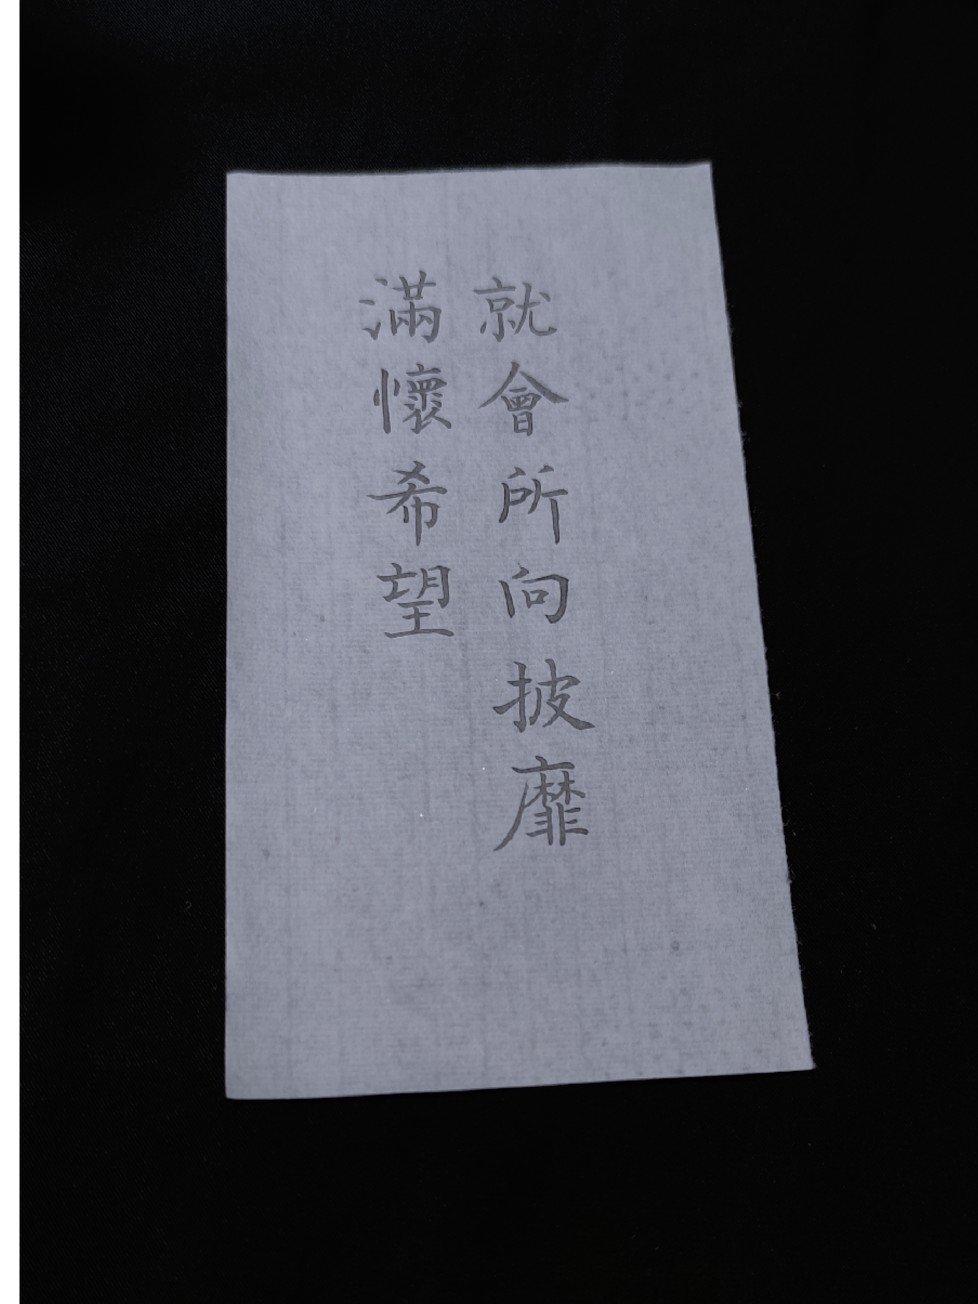 滿懷希望
就會所向披靡